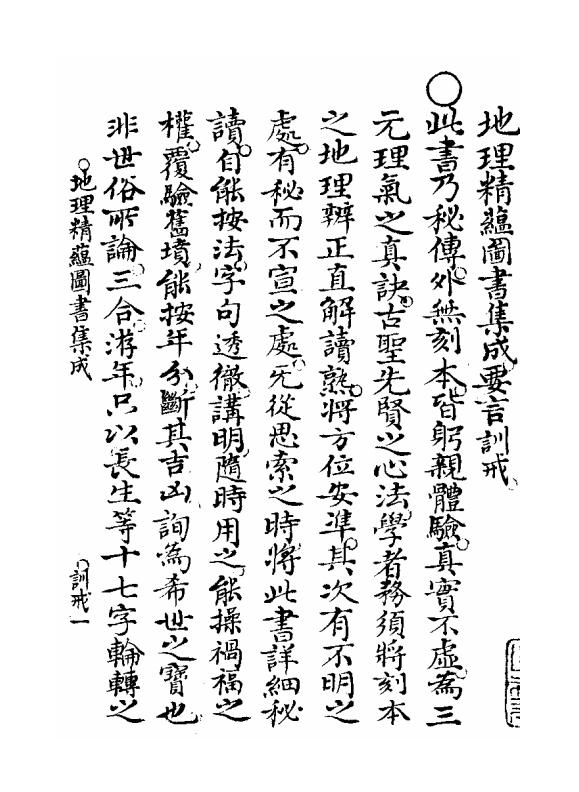 地理精蘊圖書集成要言訓戒
○此書乃秘傳外無刻本皆躬親體驗真實不虛為三
元理氣之真訣古聖先賢之心法學者務須將刻本
之地理辨正直解讀熟將方位安準其次有不明之
處有秘而不宣之處无從思索之時將此書詳細秘
讀自能按法字句透徹講明隨時用之能操禍福之
權覆驗舊墳能按年分斷其吉凶詢為希世之寶也
非世俗所論三合游年只以長生等十七字輪轉之
地理精蘊圖書集成
訓戒一